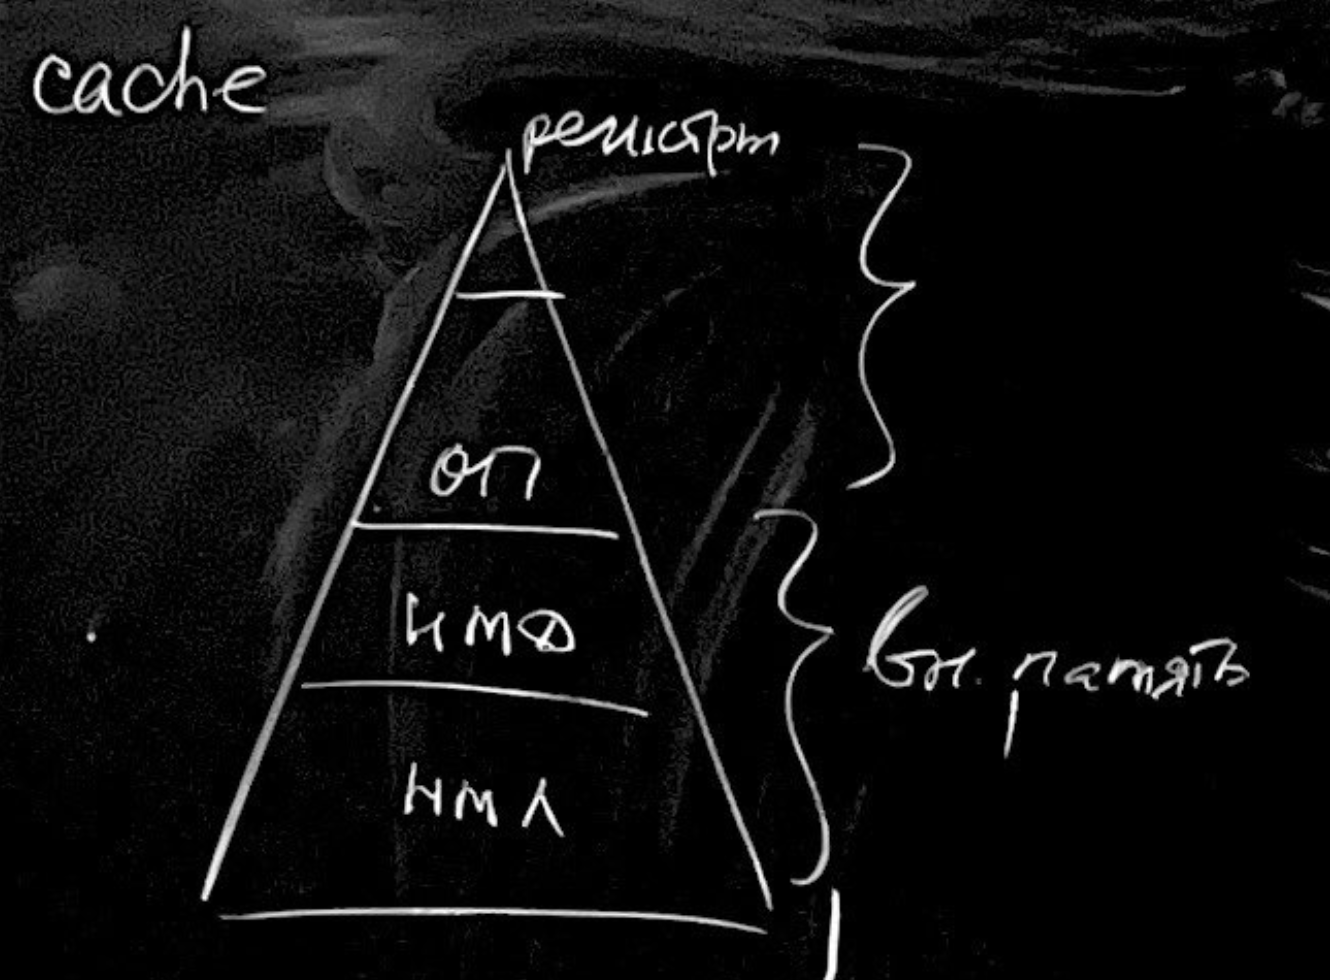 cache
регистры
ОП
НМД
НМЛ
вн. память